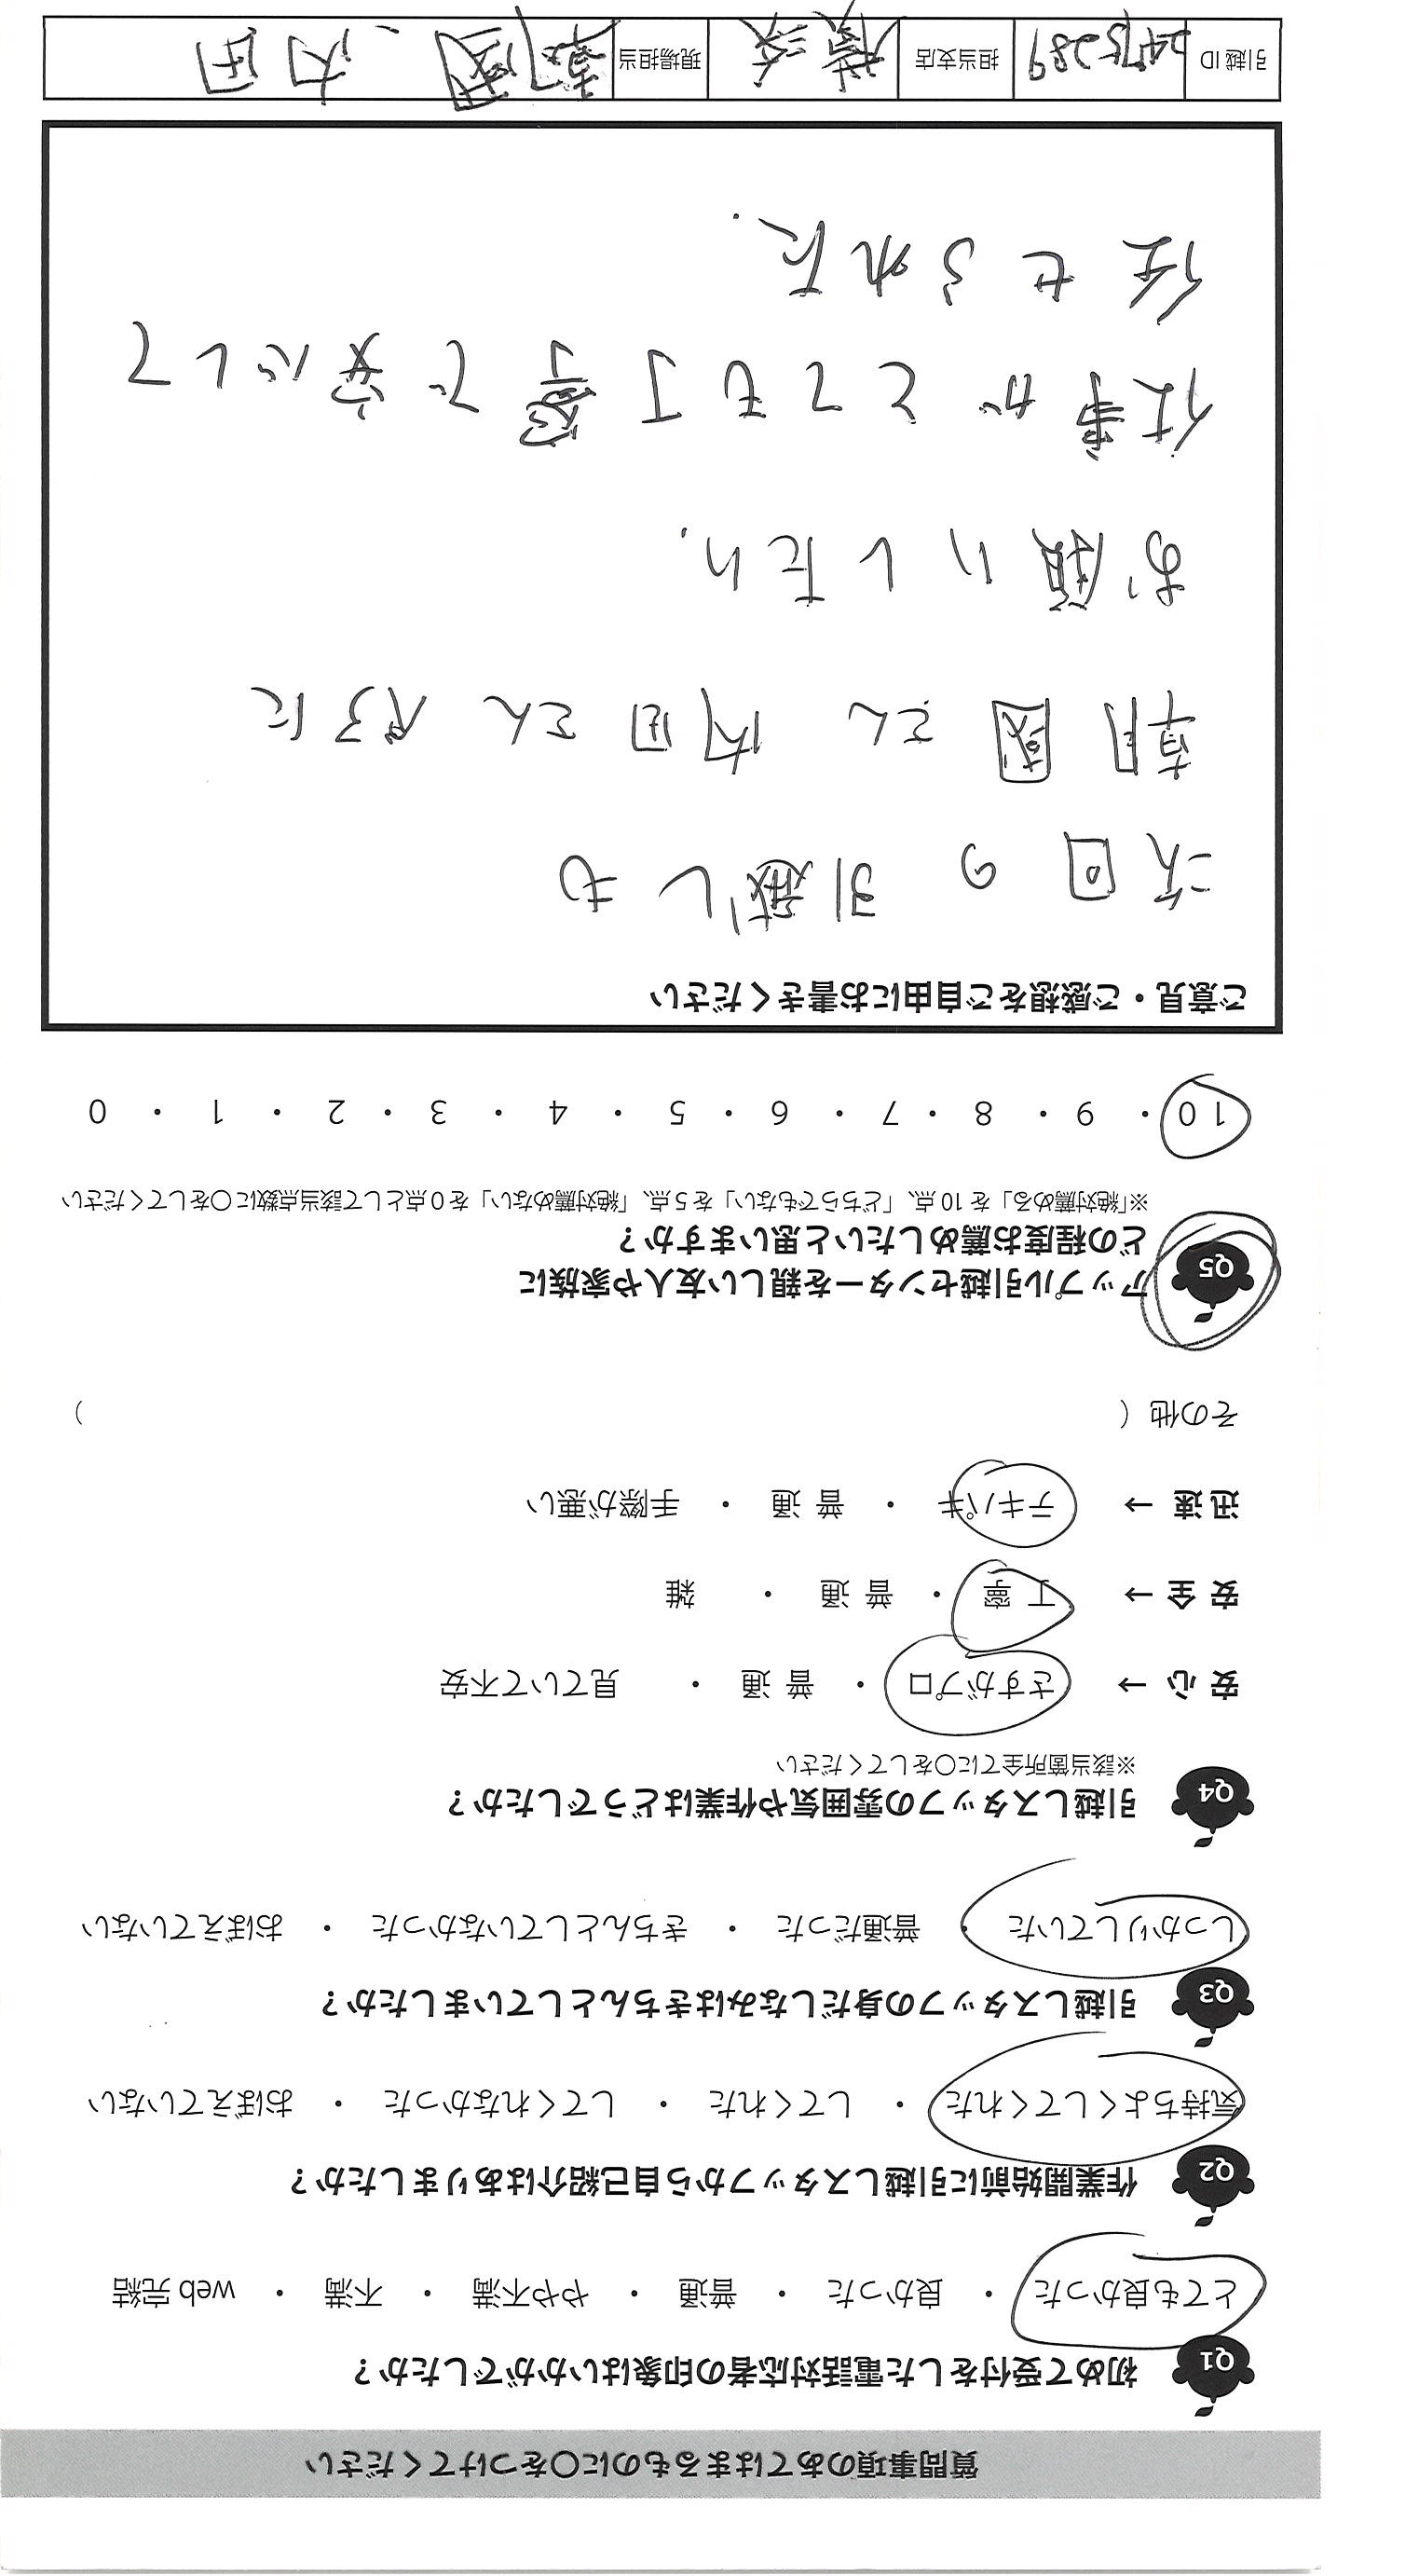 質問事項のあてはまるものに○をつけてください
Q1 初めて受付をした電話対応者の印象はいかがでしたか?
とても良かった ・ 良かった ・ 普通 ・ やや不満 ・ 不満 ・ web 完結
Q2 作業開始前に引越しスタッフから自己紹介はありましたか?
気持ちよくしてくれた ・ してくれた ・ してくれなかった ・ おぼえていない
Q3 引越しスタッフの身だしなみはきちんとしていましたか?
しっかりしていた ・ 普通だった ・ きちんとしていなかった ・ おぼえていない
Q4 引越しスタッフの雰囲気や作業はどうでしたか?
※該当箇所全てに○をしてください
安 心 → さすがプロ ・ 普 通 ・ 見ていて不安
安 全 → 丁 寧 ・ 普 通 ・ 雑
迅 速 → テキパキ ・ 普 通 ・ 手際が悪い
その他 ( )
Q5 アップル引越センターを親しい友人や家族に
どの程度お薦めしたいと思いますか?
※「絶対薦める」を 10 点、「どちらでもない」を 5 点、「絶対薦めない」を 0 点として該当点数に○をしてください
10 ・ 9 ・ 8 ・ 7 ・ 6 ・ 5 ・ 4 ・ 3 ・ 2 ・ 1 ・ 0
ご意見・ご感想をご自由にお書きください
次回の引越しも
朝國さん 内田さん ペアに
お願いしたい.
仕事がとても丁寧で安心して
任せられた.
引越 ID 2475289 担当支店 横浜 現場担当 朝國、内田